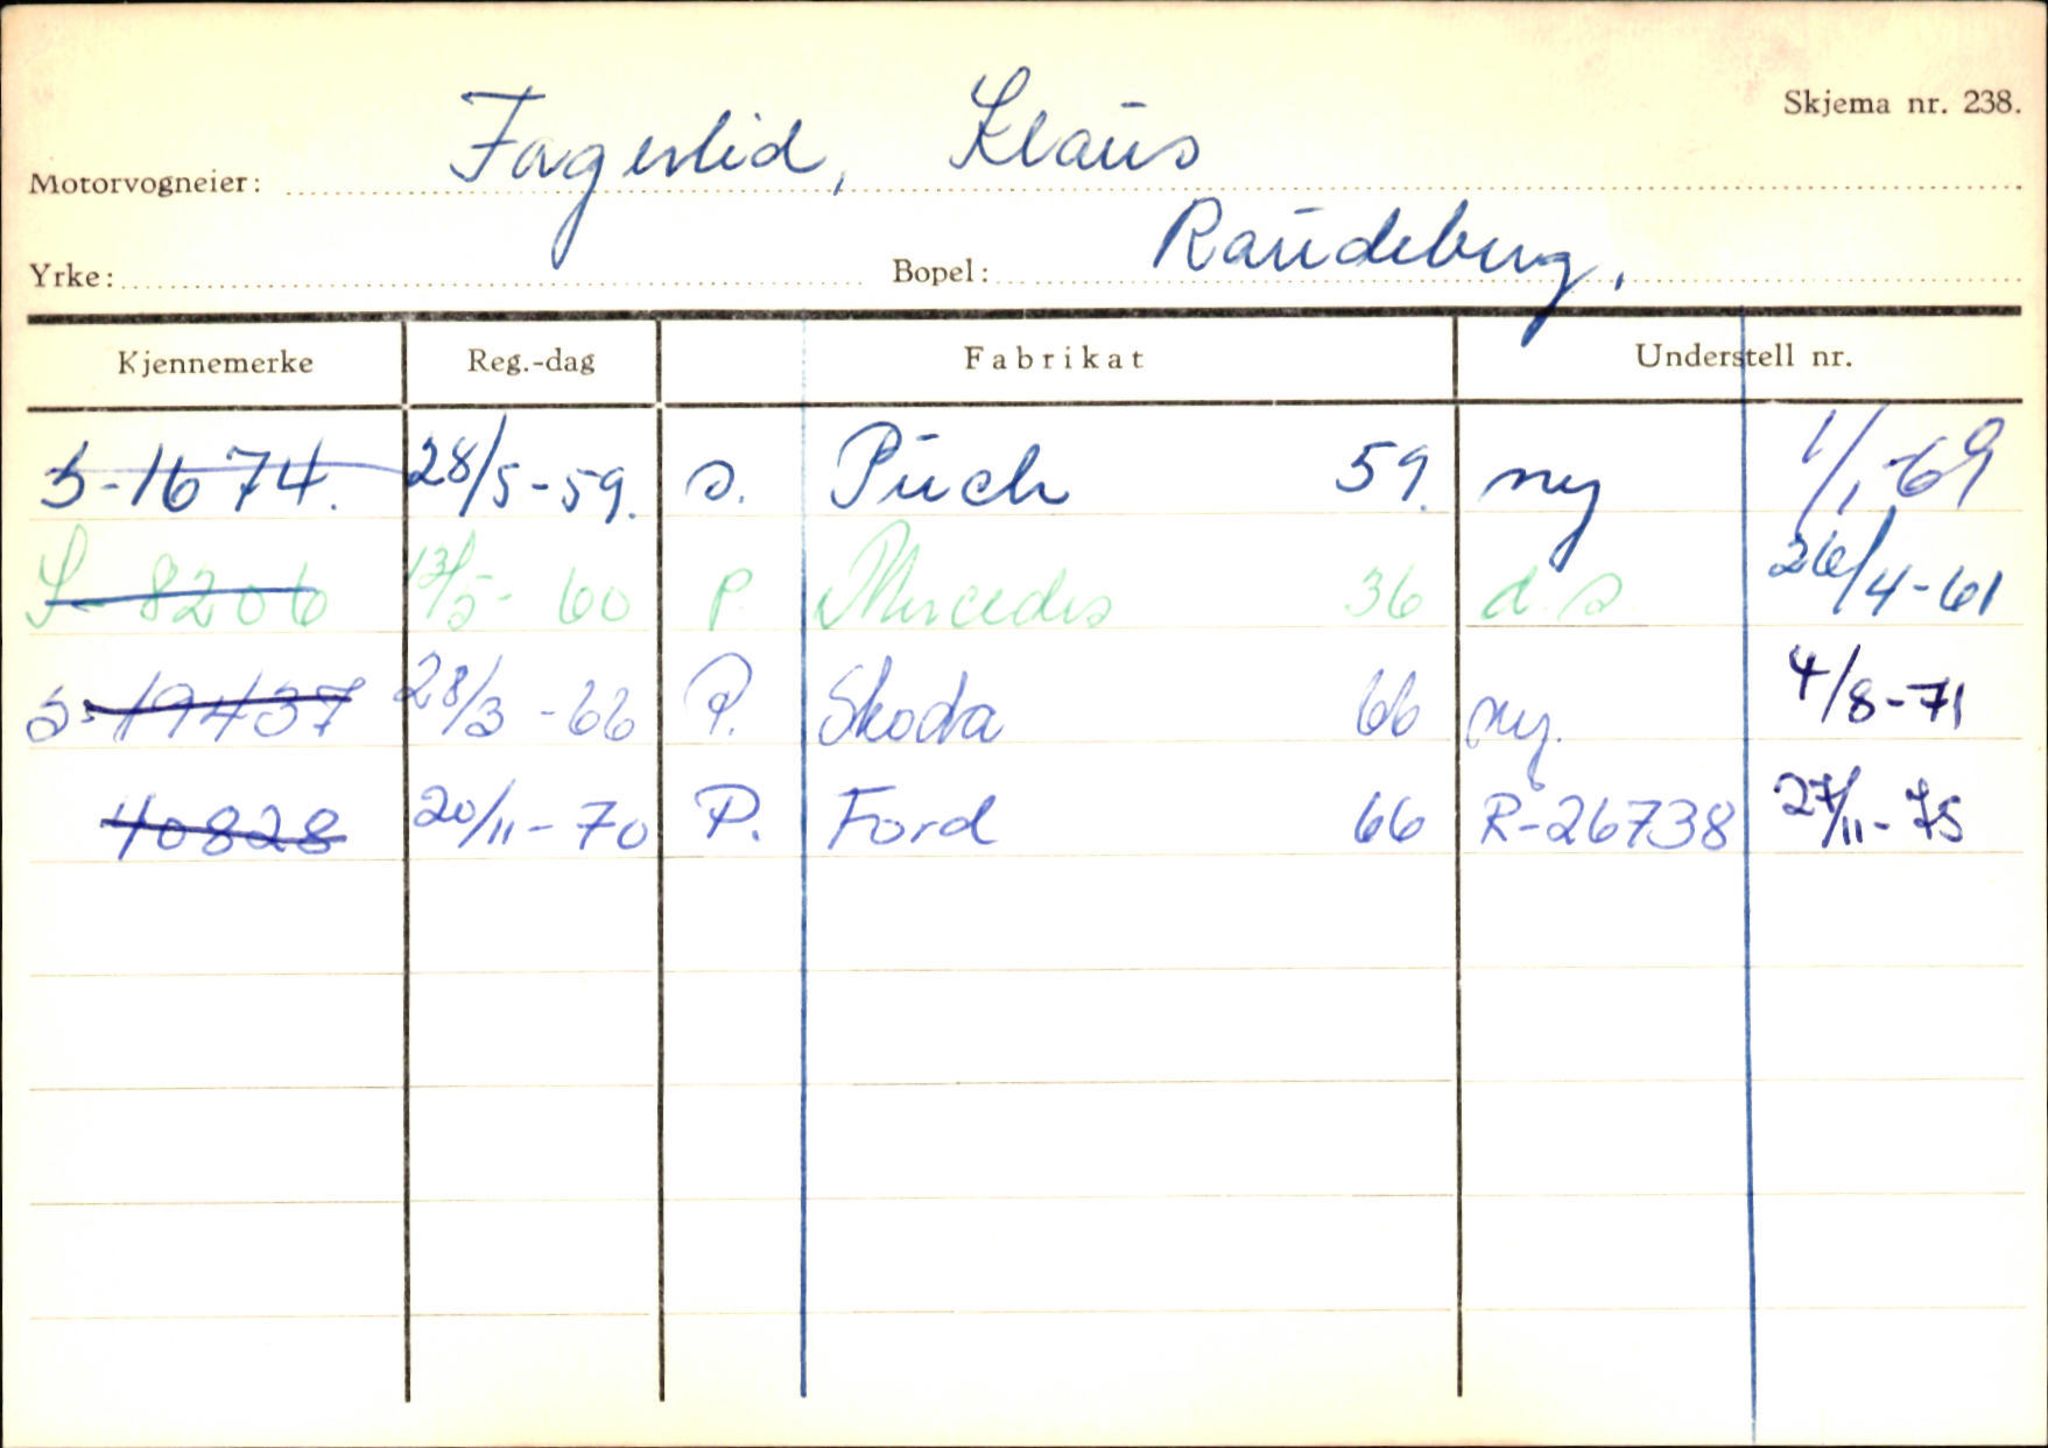 Skjema nr. 238.
Motorvogneier: Fagerlid, Klaus
Yrke: Bopel: Raudeberg,
Kjennemerke Reg.-dag Fabrikat Understell nr.
S-1674. 28/5-59. s. Puch 59. ny 1/1-69
S-8206 13/5-60 P. Mercedes 36 d.s. 26/4-61
S-19437 28/3-66 P. Skoda 66 ny. 4/8-71
40828 20/11-70 P. Ford 66 R-26738 27/11-75